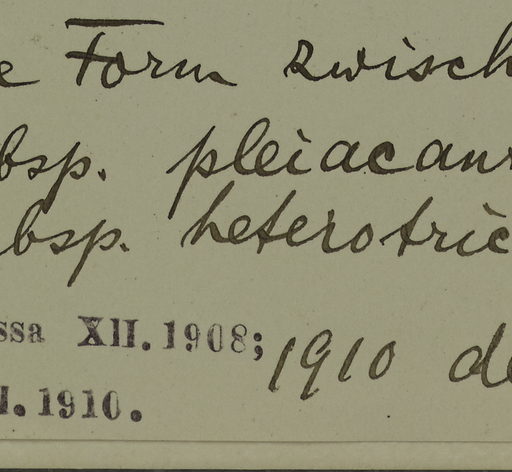 e Form zwisch
bsp. pleiacan
bsp. heterotric
ssa XII. 1908; 1910 de
I. 1910.